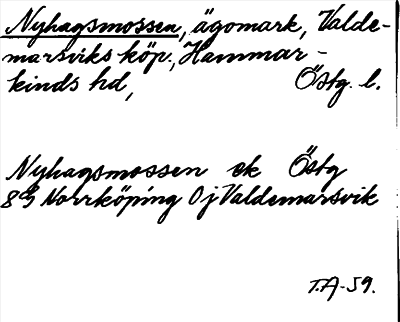 Nyhagsmossen, ägomark, Valde-
marsviks köp., Hammar-
kinds hd, Östg. l.
Nyhagsmossen ek Östg
8G Norrköping 0j Valdemarsvik
T.A-59.